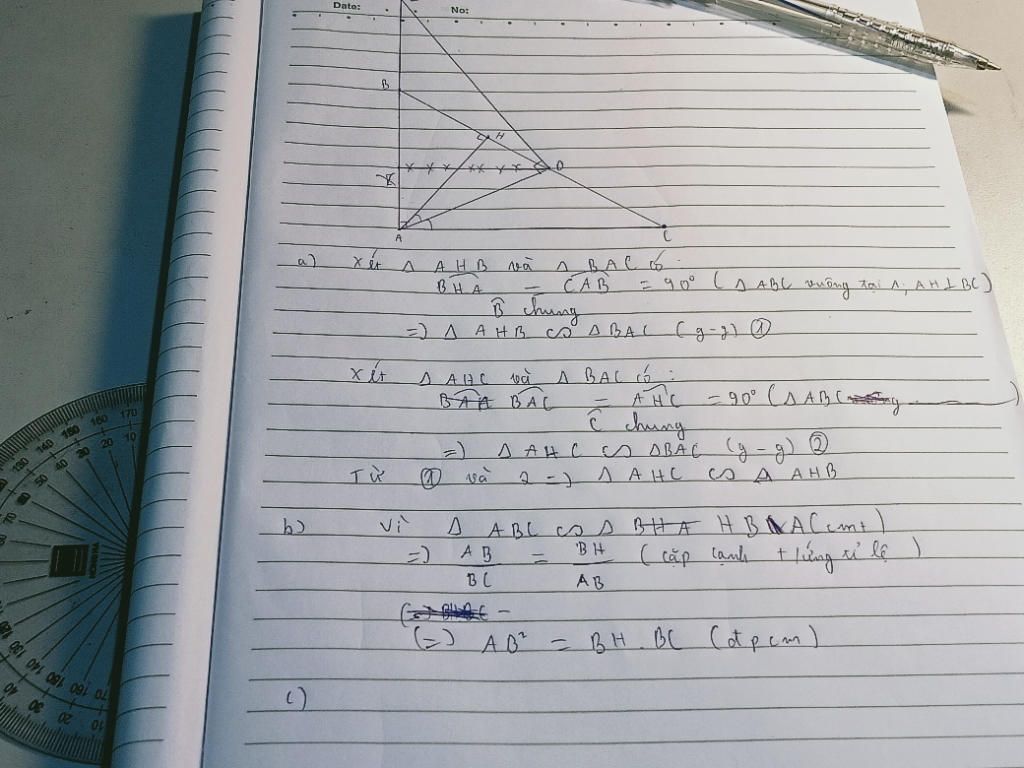 Date: No:
B
H
D
A
C
a) Xét Δ AHB và Δ BAC có:
BHA = CAB = 90° (Δ ABC vuông tại A; AH⊥BC)
B̂ chung
=) Δ AHB ∽ Δ BAC (g-g) ①
Xét Δ AHC và Δ BAC có:
BAC = AHC = 90° (Δ ABC
Ĉ chung
=) Δ AHC ∽ ΔBAC (g-g) ②
Từ ① và 2 =) Δ AHC ∽ Δ AHB
b) Vì Δ ABC ∽ Δ BHA HBA (cmt)
=) AB/BC = BH/AB (cặp cạnh t/ứng tỉ lệ)
(=) AB² = BH.BC (đpcm)
c)
170